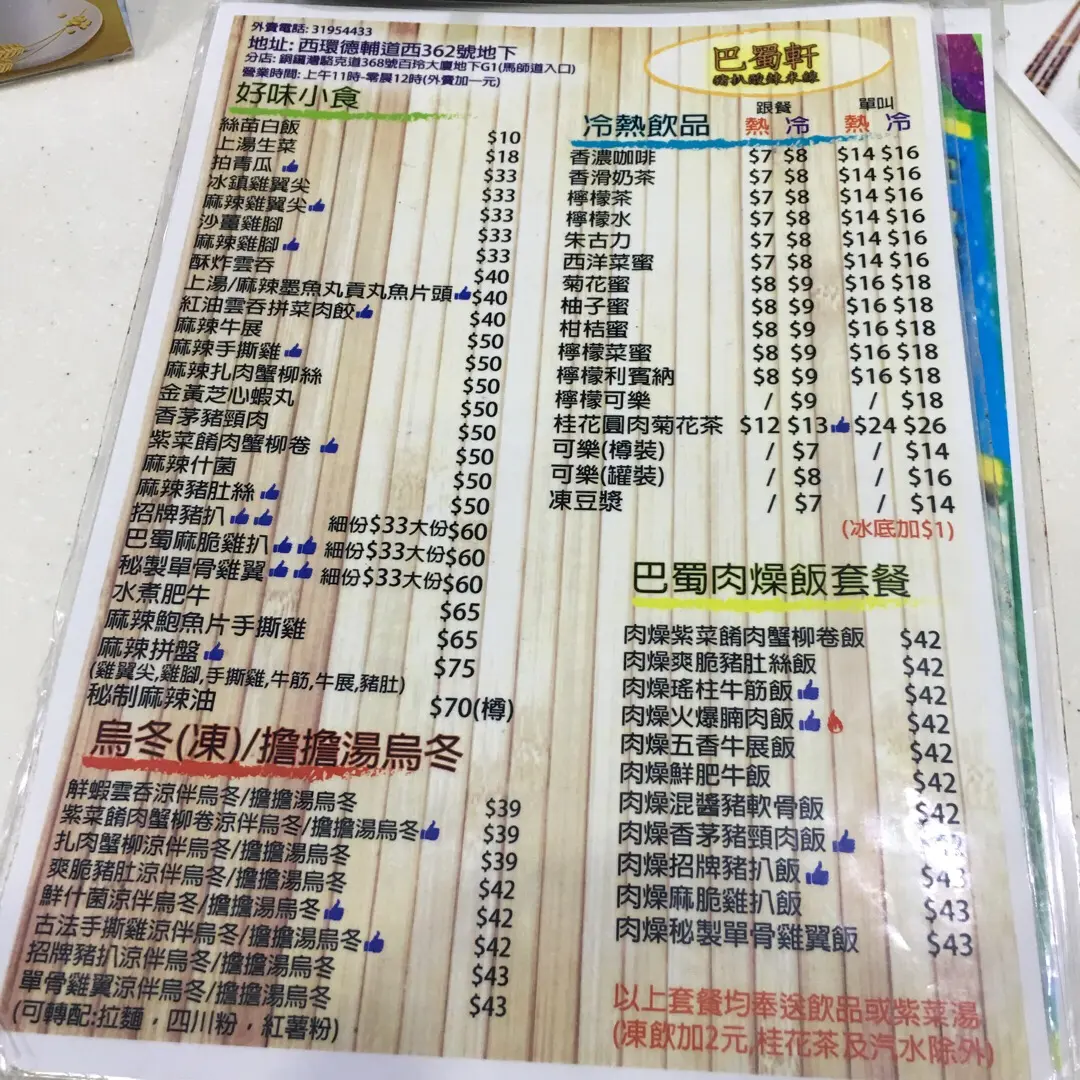 外賣電話: 31954433
地址: 西環德輔道西362號地下
分店: 銅鑼灣駱克道368號百玲大廈地下G1(馬師道入口)
營業時間: 上午11時-零晨12時(外賣加一元)
巴蜀軒
豬扒酸辣米線
好味小食
絲苗白飯 $10
上湯生菜 $18
拍青瓜 $33
冰鎮雞翼尖 $33
麻辣雞翼尖 $33
沙薑雞腳 $33
麻辣雞腳 $33
酥炸雲吞 $40
上湯/麻辣墨魚丸貢丸魚片頭 $40
紅油雲吞拼菜肉餃 $40
麻辣牛展 $50
麻辣手撕雞 $50
麻辣扎肉蟹柳絲 $50
金黃芝心蝦丸 $50
香茅豬頸肉 $50
紫菜餚肉蟹柳卷 $50
麻辣什菌 $50
麻辣豬肚絲 $50
招牌豬扒 細份$33大份$60
巴蜀麻脆雞扒 細份$33大份$60
秘製單骨雞翼 細份$33大份$60
水煮肥牛 $65
麻辣鮑魚片手撕雞 $65
麻辣拼盤 $75
(雞翼尖,雞腳,手撕雞,牛筋,牛展,豬肚)
秘制麻辣油 $70(樽)
烏冬(凍)/擔擔湯烏冬
鮮蝦雲吞涼伴烏冬/擔擔湯烏冬 $39
紫菜餚肉蟹柳卷涼伴烏冬/擔擔湯烏冬 $39
扎肉蟹柳涼伴烏冬/擔擔湯烏冬 $39
爽脆豬肚涼伴烏冬/擔擔湯烏冬 $42
鮮什菌涼伴烏冬/擔擔湯烏冬 $42
古法手撕雞涼伴烏冬/擔擔湯烏冬 $42
招牌豬扒涼伴烏冬/擔擔湯烏冬 $43
單骨雞翼涼伴烏冬/擔擔湯烏冬 $43
(可轉配:拉麵，四川粉，紅薯粉)
跟餐 單叫
冷熱飲品 熱 冷 熱 冷
香濃咖啡 $7 $8 $14 $16
香滑奶茶 $7 $8 $14 $16
檸檬茶 $7 $8 $14 $16
檸檬水 $7 $8 $14 $16
朱古力 $7 $8 $14 $16
西洋菜蜜 $7 $8 $14 $16
菊花蜜 $8 $9 $16 $18
柚子蜜 $8 $9 $16 $18
柑桔蜜 $8 $9 $16 $18
檸檬菜蜜 $8 $9 $16 $18
檸檬利賓納 $8 $9 $16 $18
檸檬可樂 / $9 / $18
桂花圓肉菊花茶 $12 $13 $24 $26
可樂(樽裝) / $7 / $14
可樂(罐裝) / $8 / $16
凍豆漿 / $7 / $14
(冰底加$1)
巴蜀肉燥飯套餐
肉燥紫菜餚肉蟹柳卷飯 $42
肉燥爽脆豬肚絲飯 $42
肉燥瑤柱牛筋飯 $42
肉燥火爆腩肉飯 $42
肉燥五香牛展飯 $42
肉燥鮮肥牛飯 $42
肉燥混醬豬軟骨飯 $42
肉燥香茅豬頸肉飯
肉燥招牌豬扒飯 $43
肉燥麻脆雞扒飯 $43
肉燥秘製單骨雞翼飯 $43
以上套餐均奉送飲品或紫菜湯
(凍飲加2元,桂花茶及汽水除外)